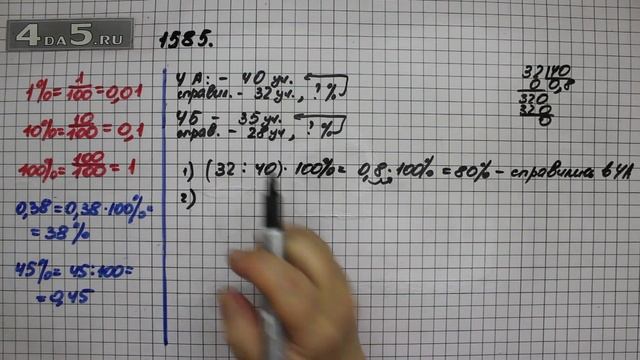 4DA5.RU
1585.
1% = 1/100 = 0,01
10% = 10/100 = 0,1
100% = 100/100 = 1
0,38 = 0,38 · 100% =
= 38%
45% = 45 : 100 =
= 0,45
4А: - 40 уч.
справил. - 32 уч., ? %
4Б - 35 уч.
справ. - 28 уч, ? %
1) (32 : 40) · 100% = 0,8 · 100% = 80% - справились в 4А
2)
32 | 40
0 | 0,8
320
320
0